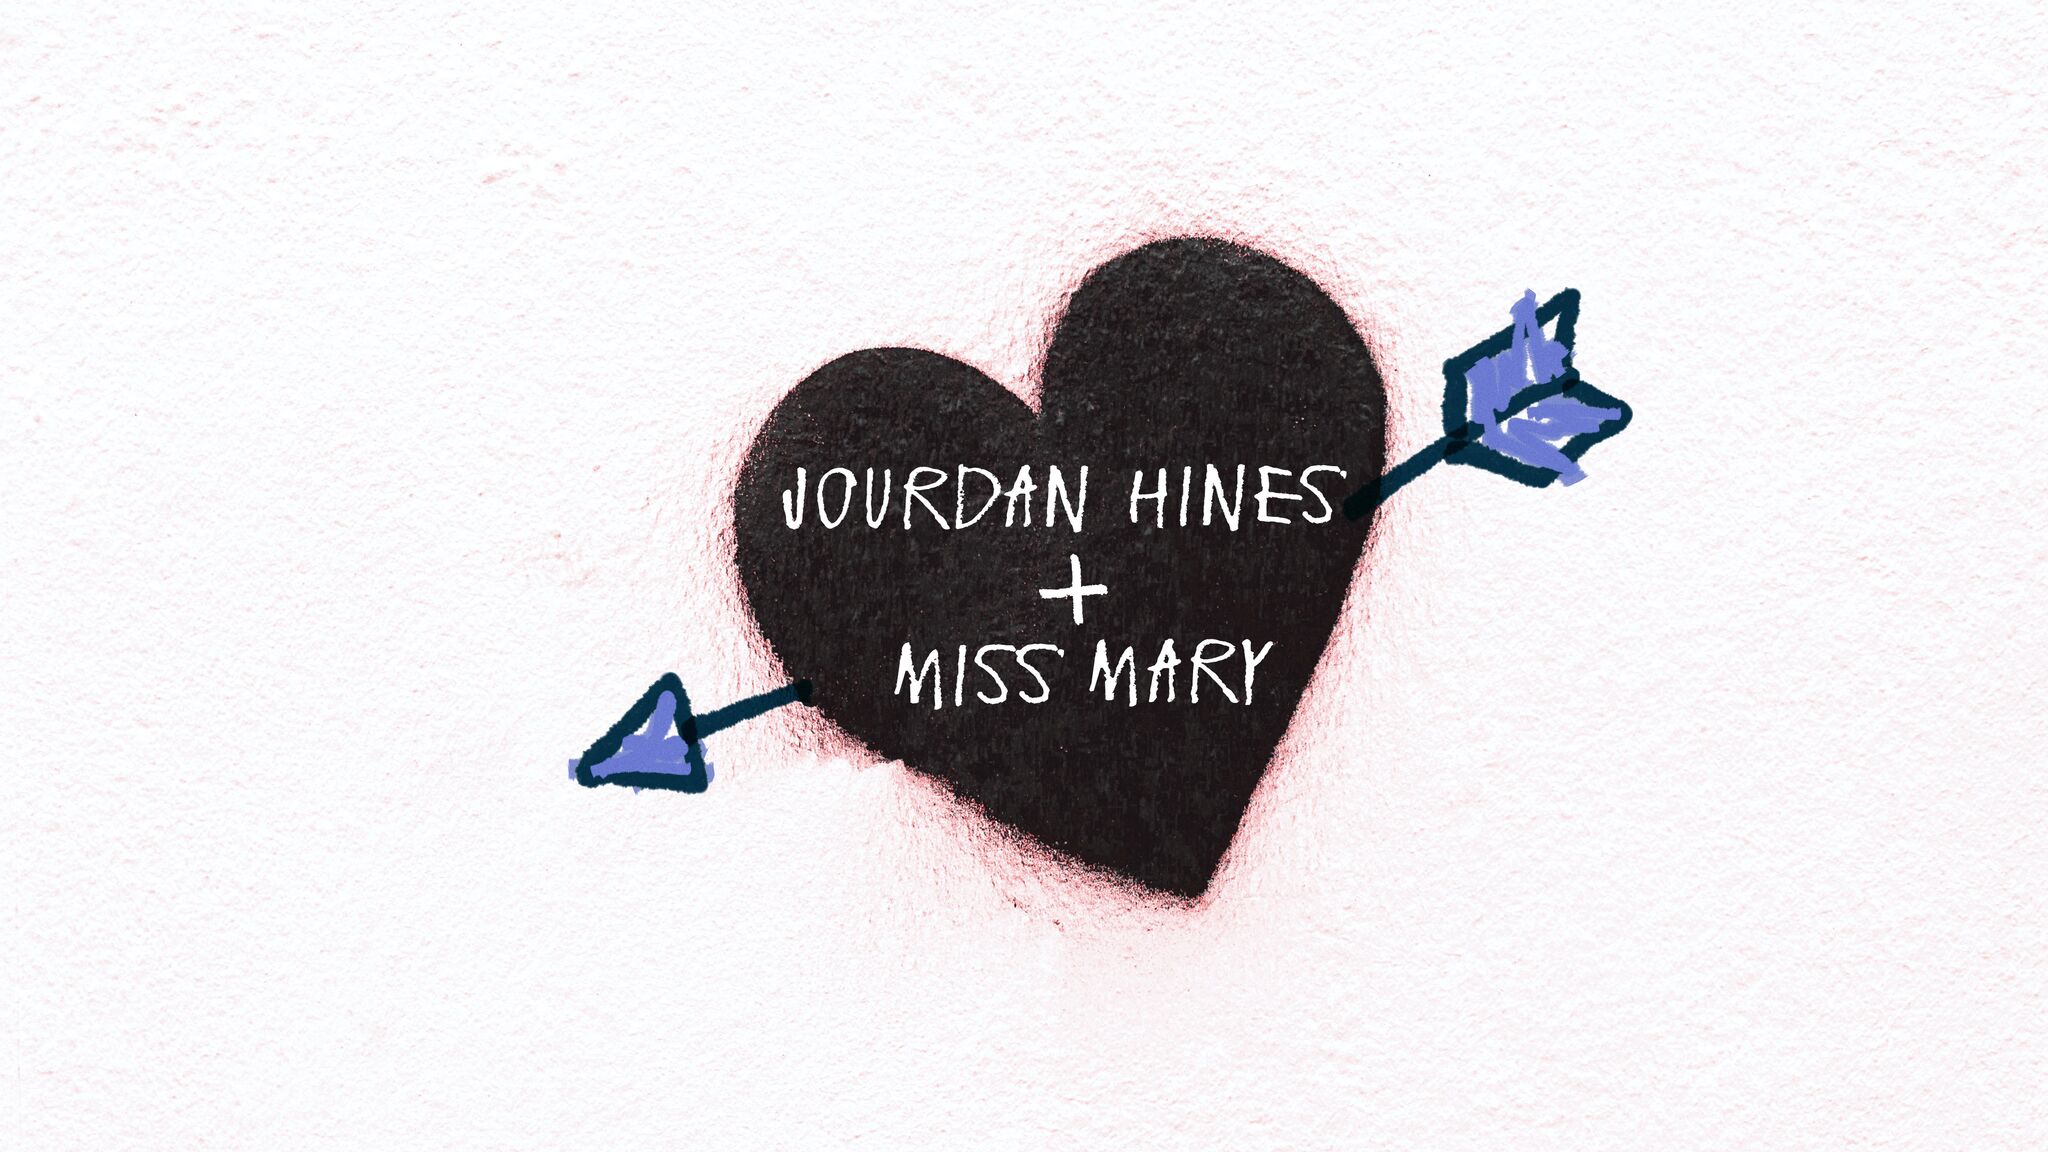 JOURDAN HINES
+
MISS MARY